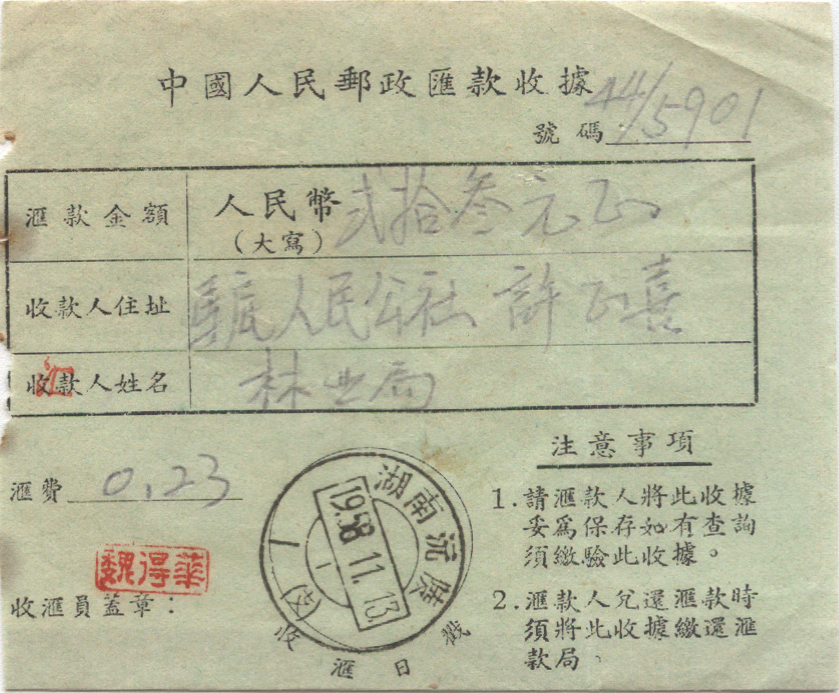 中國人民郵政匯款收據
號碼: 44/5901
滙款金額 人民幣 弍拾叁元正
(大寫)
收款人住址 人民公社 許正喜
收款人姓名 林业局
滙費 0.23
魏得華
收滙員蓋章:
湖南沅陵
1958.11.13
收滙日戳
注意事項
1.請滙款人將此收據
妥爲保存如有查詢
須繳驗此收據。
2.滙款人兌還滙款時
須將此收據繳還滙
款局。